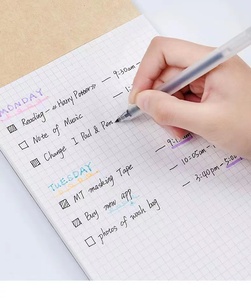 MONDAY
Reading - 《Harry Potter》 — 9:30am
Note of Music
Change I Pad & Pen
TUESDAY
MT masking Tape
Buy new app — 10:05am
photos of wash bag — 3:20pm